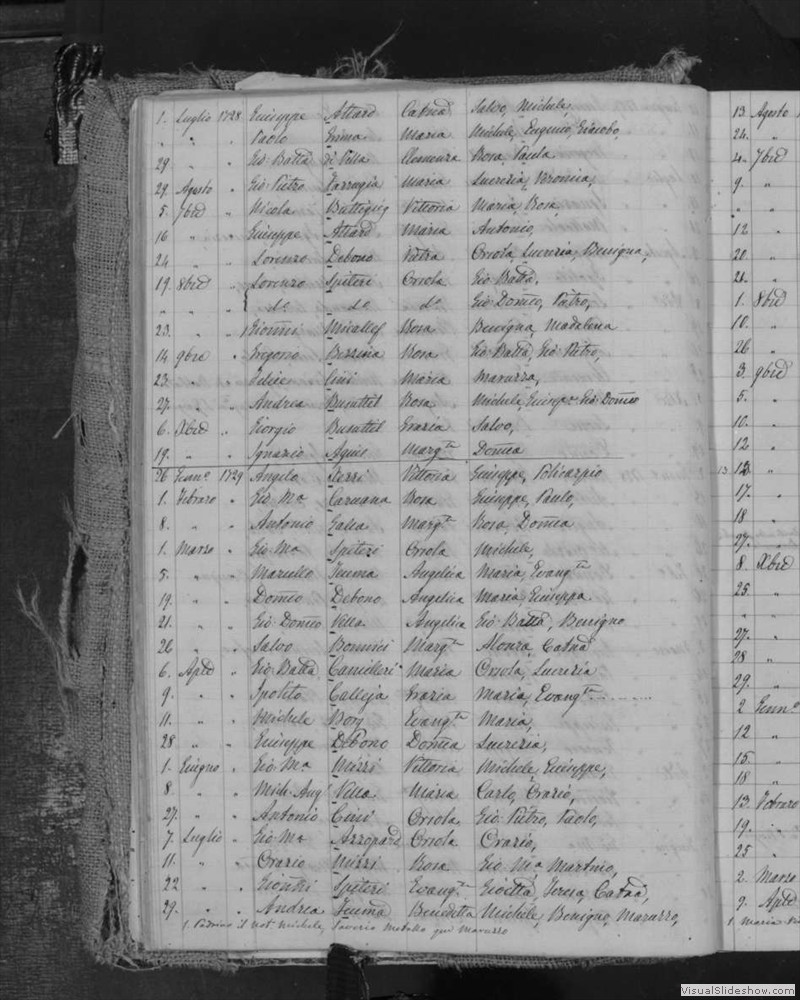 1. Luglio 1728 Giuseppe Attard Catna Salvo, Michele,
" " " Paolo Grima Maria Michele, Eugenio, Giacobo,
29. " " Gio Batta di Villa Clemenza Rosa, Paula
29. Agosto " Gio Pietro Farrugia Maria Lucrezia, Veronica,
5. 7bre " Nicola Buttigieg Vittoria Maria, Rosa,
16 " " Giuseppe Attard Maria Antonio,
24 " " Lorenzo Debono Pietra Orsola, Lucrezia, Benigna,
19. 8bre " Lorenzo Spiteri Orsola Gio Batta,
" " " do do do Gio Domco, Pietro,
23. " " Gionni Micallef Rosa Benigna, Madalena
14 9bre " Grogorio Bezzina Rosa Gio Batta, Gio Pietro,
23. " " Felice Cini Maria Maruzza,
27. " " Andrea Busuttil Rosa Michele, Giuspe Gio Domco
6. Xbre " Giorgio Busuttil Grazia Salvo,
19. " " Ignazio Aquis Margta Domca
26 Genno 1729 Angelo Vittoria Giuseppe, Policarpio
1. Febraro " Gio Ma Caruana Rosa Giuseppe, Paulo,
8. " " Antonio Galea Margta Rosa, Domca
1. Marzo " Gio Ma Spiteri Orsola Michele,
5. " " Marcello Angelica Maria, Evangta
19. " " Domco Debono Angelica Maria, Giuseppa
21. " " Gio Domco Villa Angelica Gio Batta, Benigno
26 " " Salvo Bonnici Margta Alonza, Catna
6. Aple " Gio Batta Camilleri Maria Orsola, Lucrezia
9. " " Ipolito Calleja Grazia Maria, Evangta
11. " " Michele Borg Evangta Maria,
28 " " Giuseppe Debono Domca Lucrezia,
1. Giugno " Gio Ma Mizzi Vittoria Michele, Giuseppe,
8. " " Mich. Ang. Villa Maria Carlo, Orazio,
27. " " Antonio Cini Orsola Gio Pietro, Paolo,
7. Luglio " Gio Ma Azzopard Orsola Orazio,
11. " " Orazio Mizzi Rosa Gio Ma Martino,
22 " " Gionni Spiteri Evangta Teresa, Catna,
29. " " Andrea Benedetta Michele, Benigno, Maruzzo,
1. Padrino il Not. Michele, Saverio Metallo qui Maruzzo
13. Agosto
24. "
4. 7bre
9. "
" "
12. "
20. "
21. "
1. 8bre
10. "
26 "
3. 9bre
5. "
10. "
12 "
13 "
17. "
18 "
27. "
8. Xbre
25. "
" "
27. "
28 "
29. "
2 Genno
12 "
15. "
18 "
13. Febraro
19. "
25 "
2. Marzo
9. Aple
1. Maria
VisualSlideshow.com